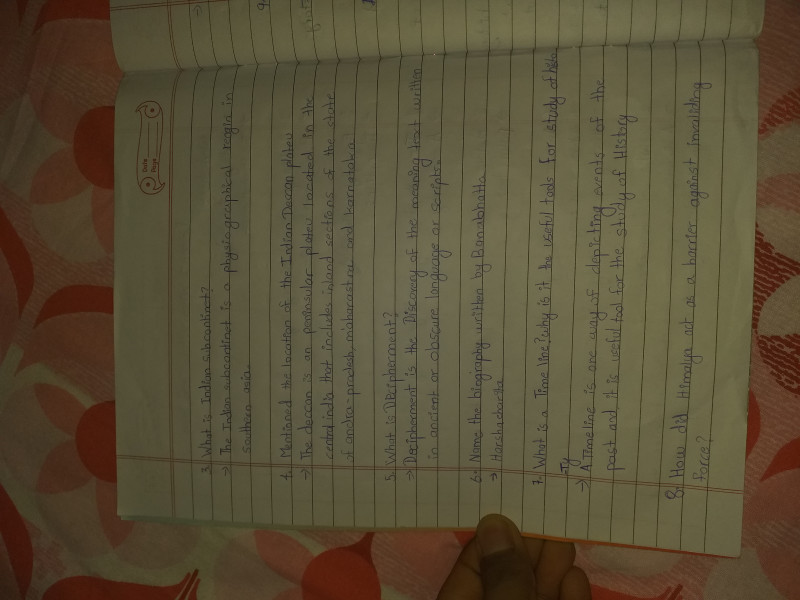 Date
Page
3. What is Indian subcontinct?
→ The Indian subcontinct is a physiographical regin in
southern asia.
4. Mentioned the location of the Indian Deccan plateu
→ The deccan is an peninsular plateu located in the
central india that includes inland sections of the state
of andra-pradesh, maharastra and karnataka.
5. What is Decipherment?
→ Decipherment is the Discovery of the meaning text written
in ancient or obscure language or scripts.
6. Name the biography written by Bannabhatta
→ Harshacharita
7. What is a Time line? why is it the useful tools for study of histo
ry
→ A Timeline is are way of depicting events of the
past and it is useful tool for the study of History
8. How did Himalya act as a barrier against invalding
force?